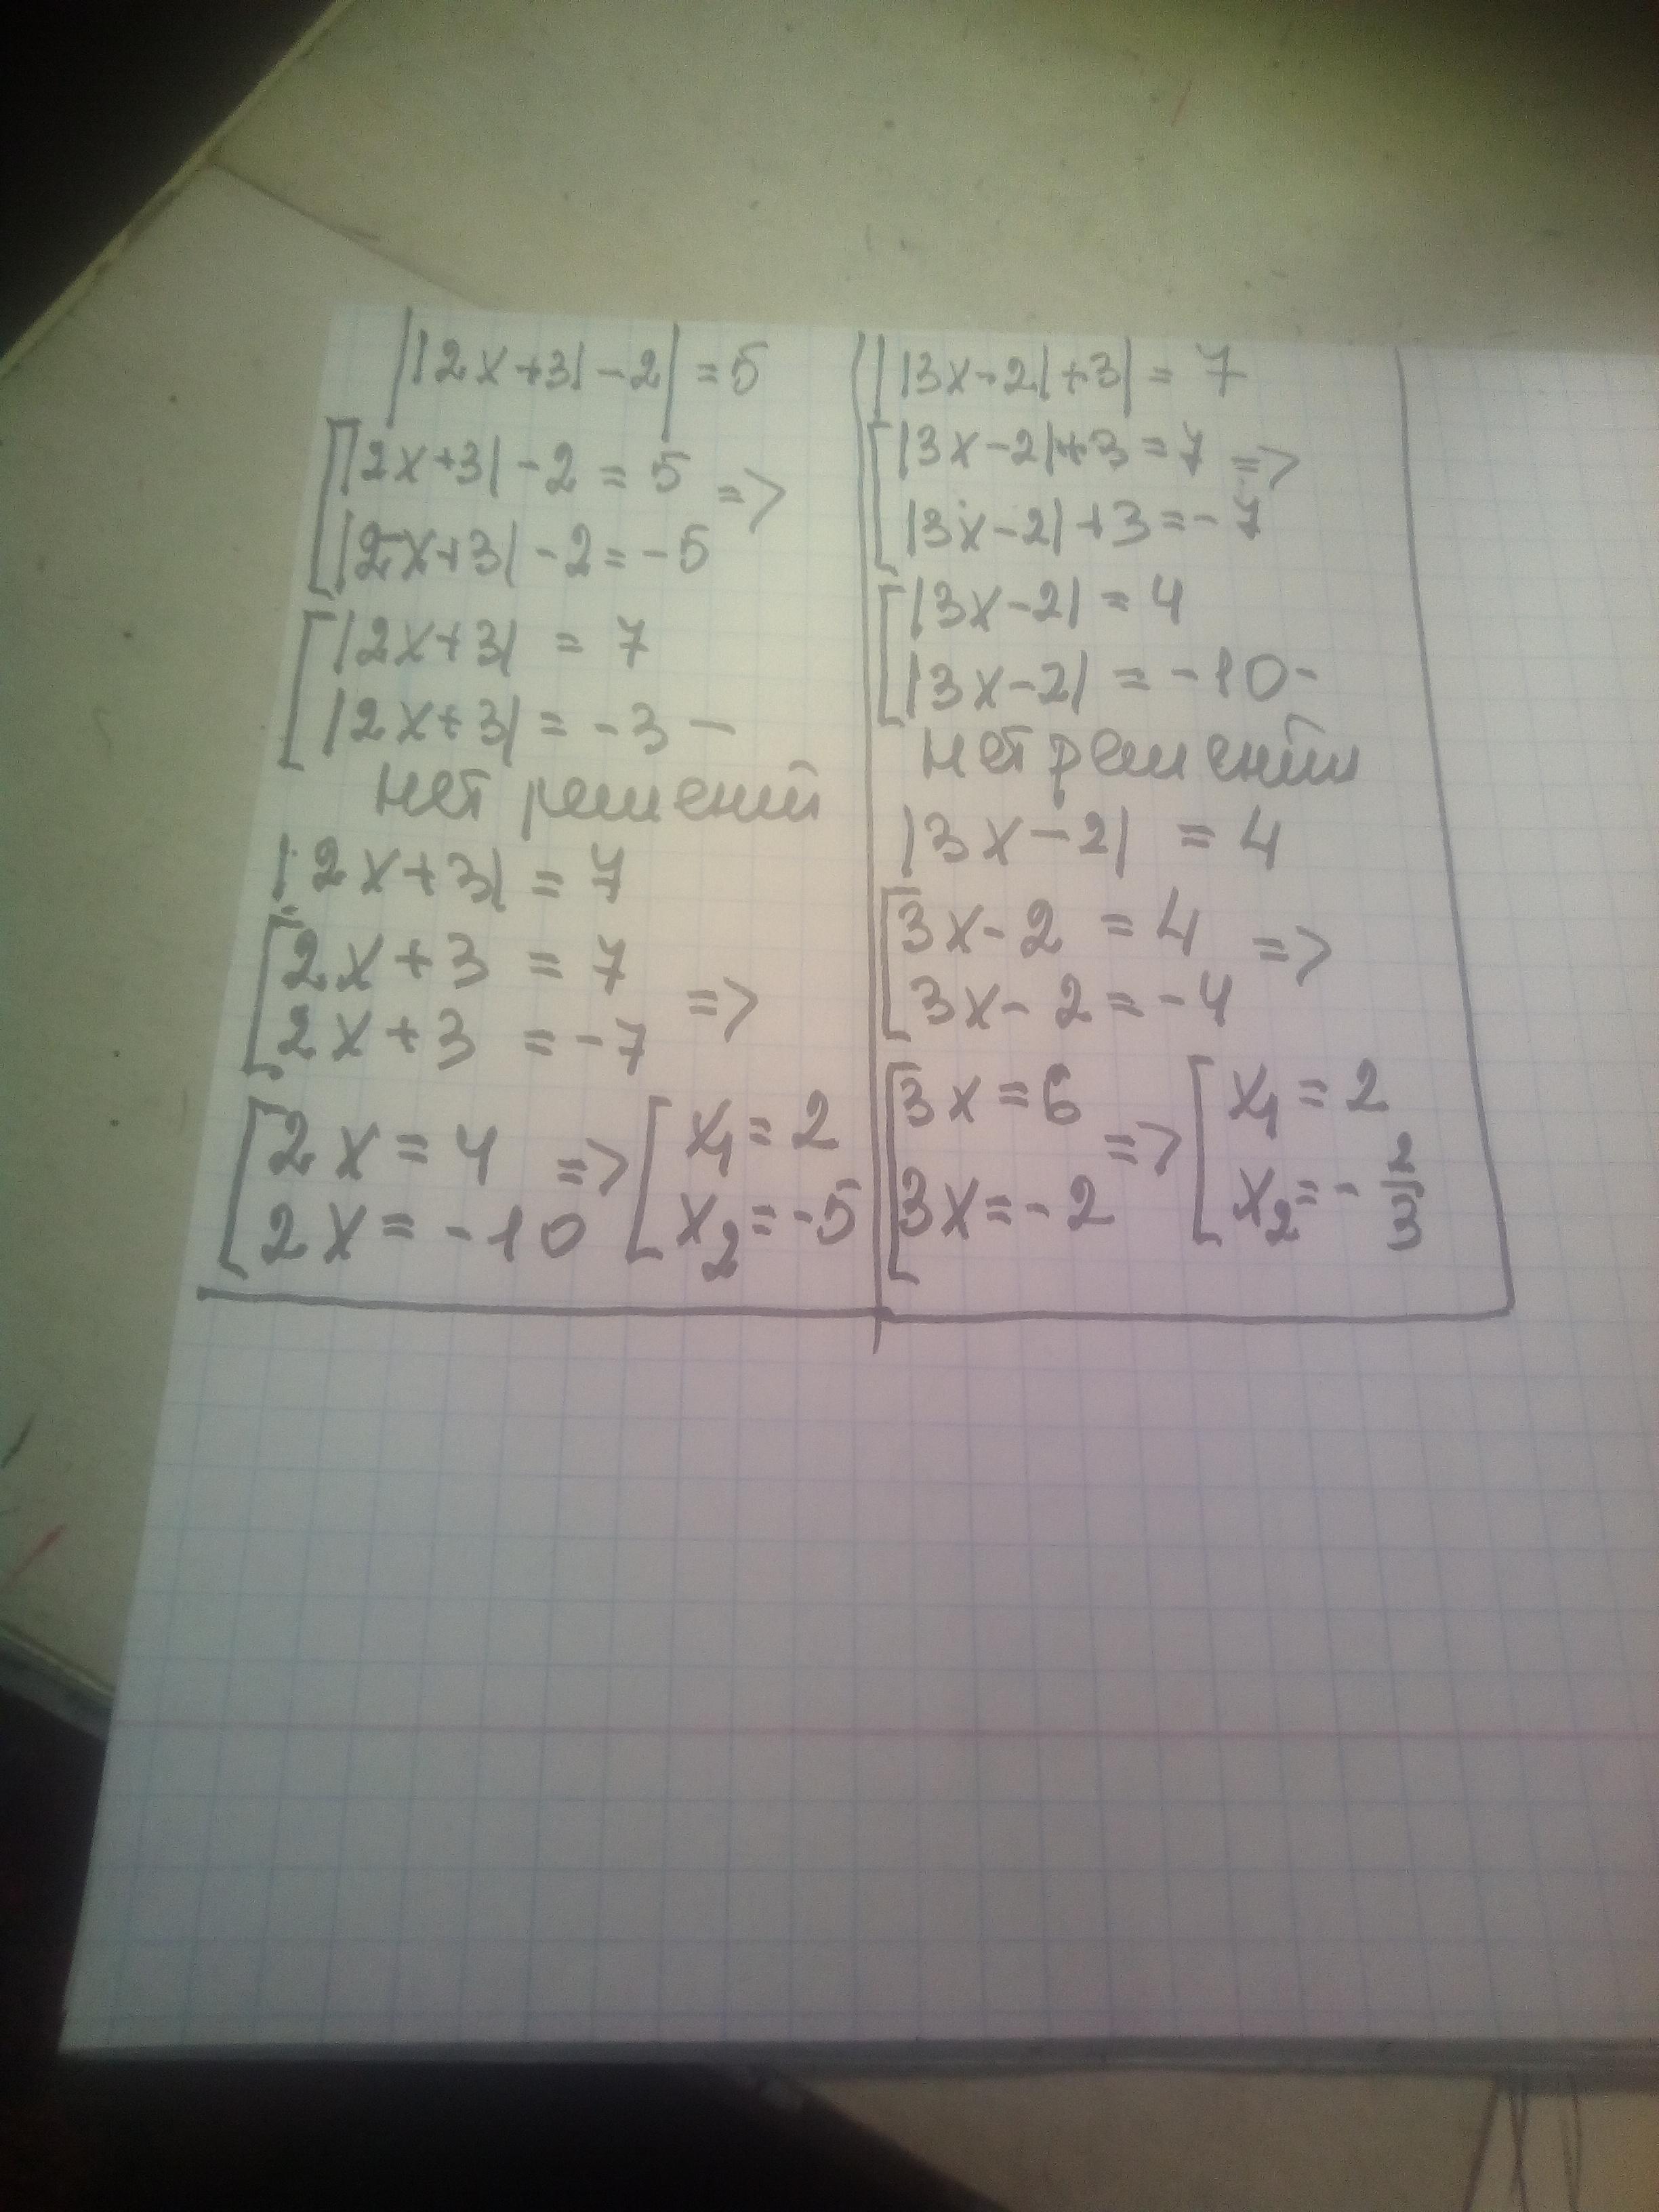 ||2x+3|-2| = 5
[|2x+3| - 2 = 5 =>
|2x+3| - 2 = -5
[|2x+3| = 7
|2x+3| = -3 -
нет решений
|2x+3| = 7
[2x + 3 = 7 =>
2x + 3 = -7
[2x = 4 => [x₁ = 2
2x = -10 x₂ = -5
||3x-2|+3| = 7
[|3x-2|+3 = 7 =>
|3x-2|+3 = -7
[|3x-2| = 4
|3x-2| = -10 -
нет решений
|3x-2| = 4
[3x-2 = 4 =>
3x-2 = -4
[3x = 6 => [x₁ = 2
3x = -2 x₂ = -2/3